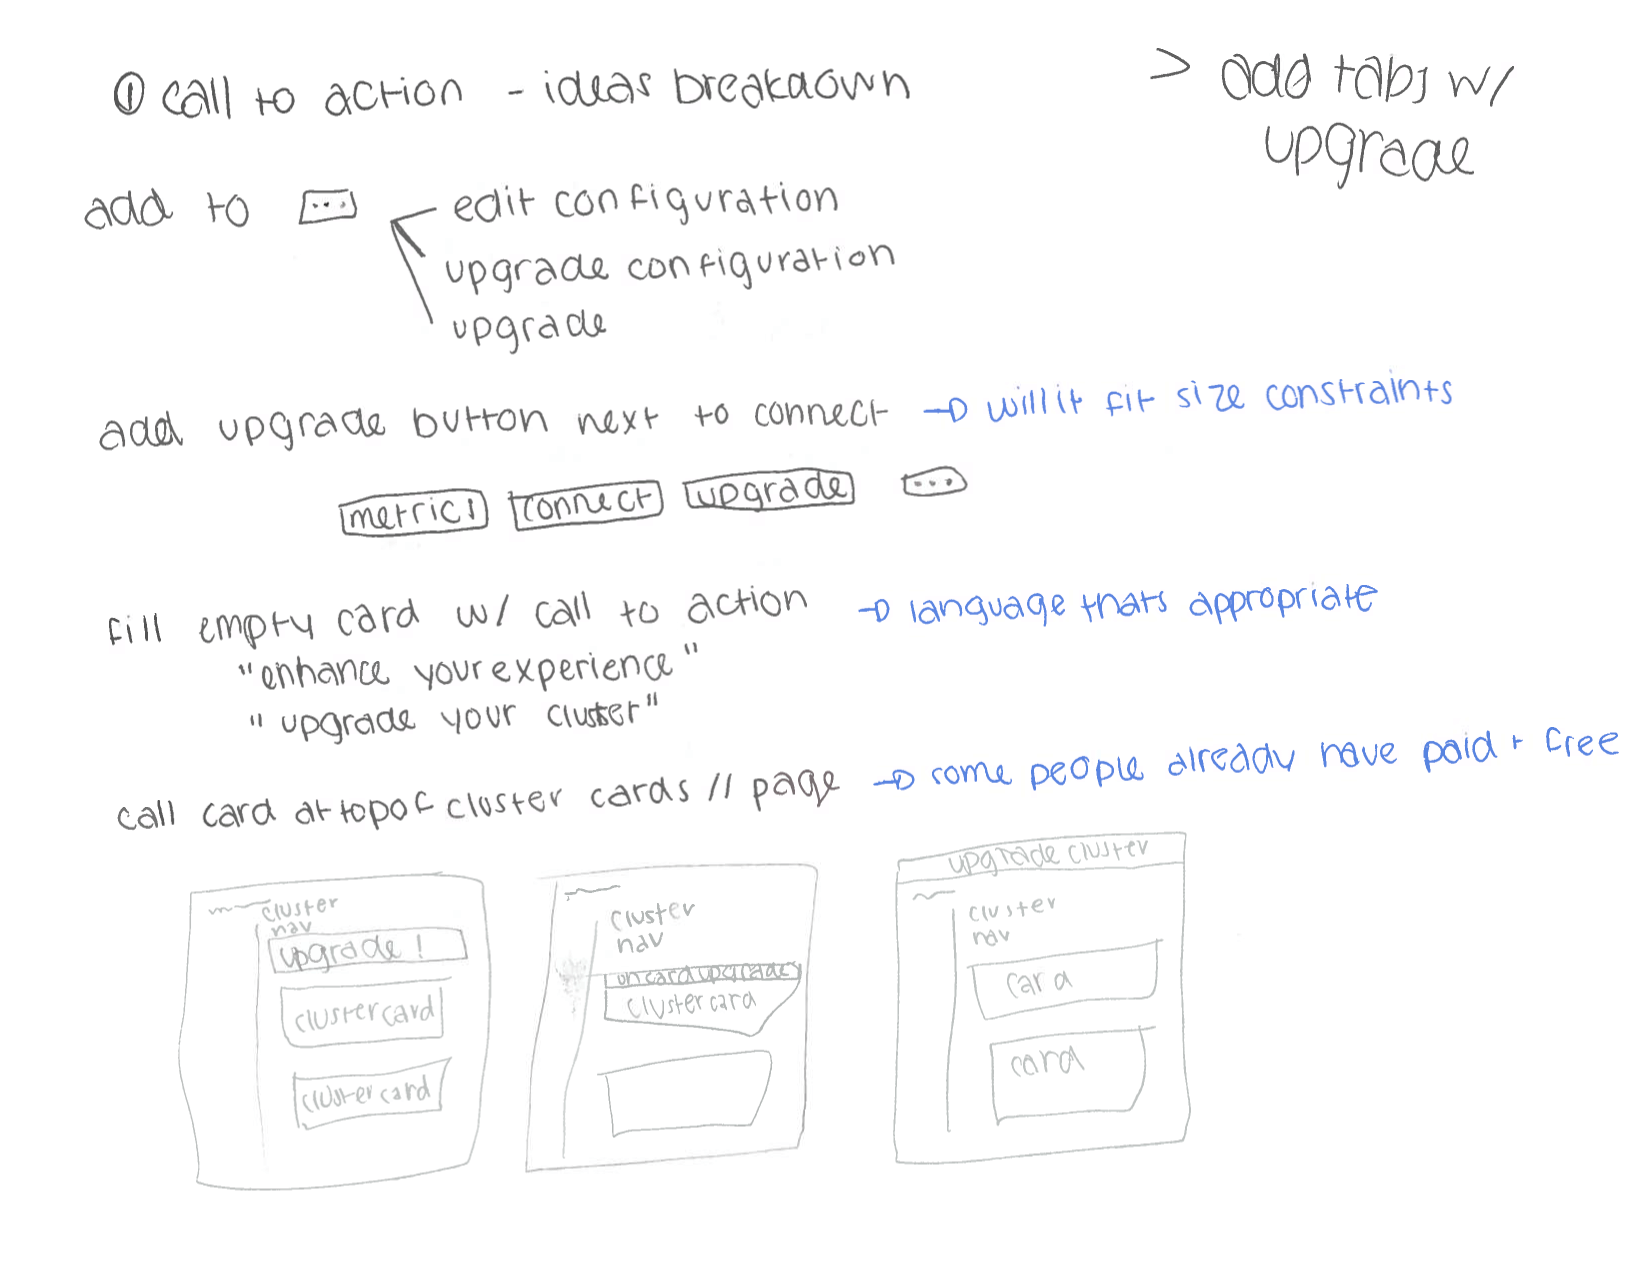 ① call to action - ideas breakdown
> add tabs w/
upgrade
add to ...
edit configuration
upgrade configuration
upgrade
add upgrade button next to connect → will it fit size constraints
metrics connect upgrade ...
fill empty card w/ call to action → language thats appropriate
"enhance your experience"
"upgrade your cluster"
call card at top of cluster cards // page → some people already have paid + free
cluster
nav
upgrade!
cluster card
cluster card
cluster
nav
on card upgrade
cluster card
upgrade cluster
cluster
nav
card
card